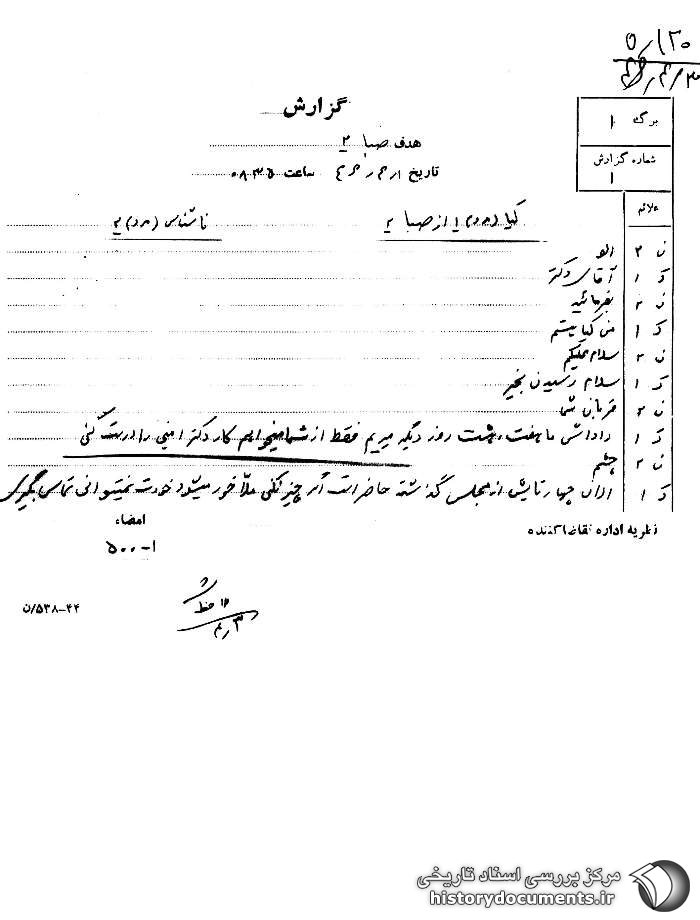 ۵/۱۲۰
گزارش
برگ ۱
هدف صبا ۲
شماره گزارش
۱
تاریخ ساعت ۰۸۳۵
علائم
کیا (مرد) ۱ از صبا ۲ ناشناس (مرد) ۲
ن ۲ الو
ک ۱ آقای دکتر
ن ۲ بفرمائید
ک ۱ من کیا هستم
ن ۲ سلام علیکم
ک ۱ سلام رسیدن بخیر
ن ۲ قربان شما
ک ۱ داداش ما هفت هشت روز دیگه میریم فقط از شما میخواهم کار دکتر امینی را درست کنی
ن ۲ چشم
ک ۱ الان چهارتایش از مجلس گذشته حاضر است اگر چیز نکنی ملاخور میشود خودت نمیتوانی تماس بگیری
نظریه اداره تقاضاکننده
امضاء
۵۰۰-۱
ن/۵۳۸-۴۴
مرکز بررسی اسناد تاریخی
historydocuments.ir